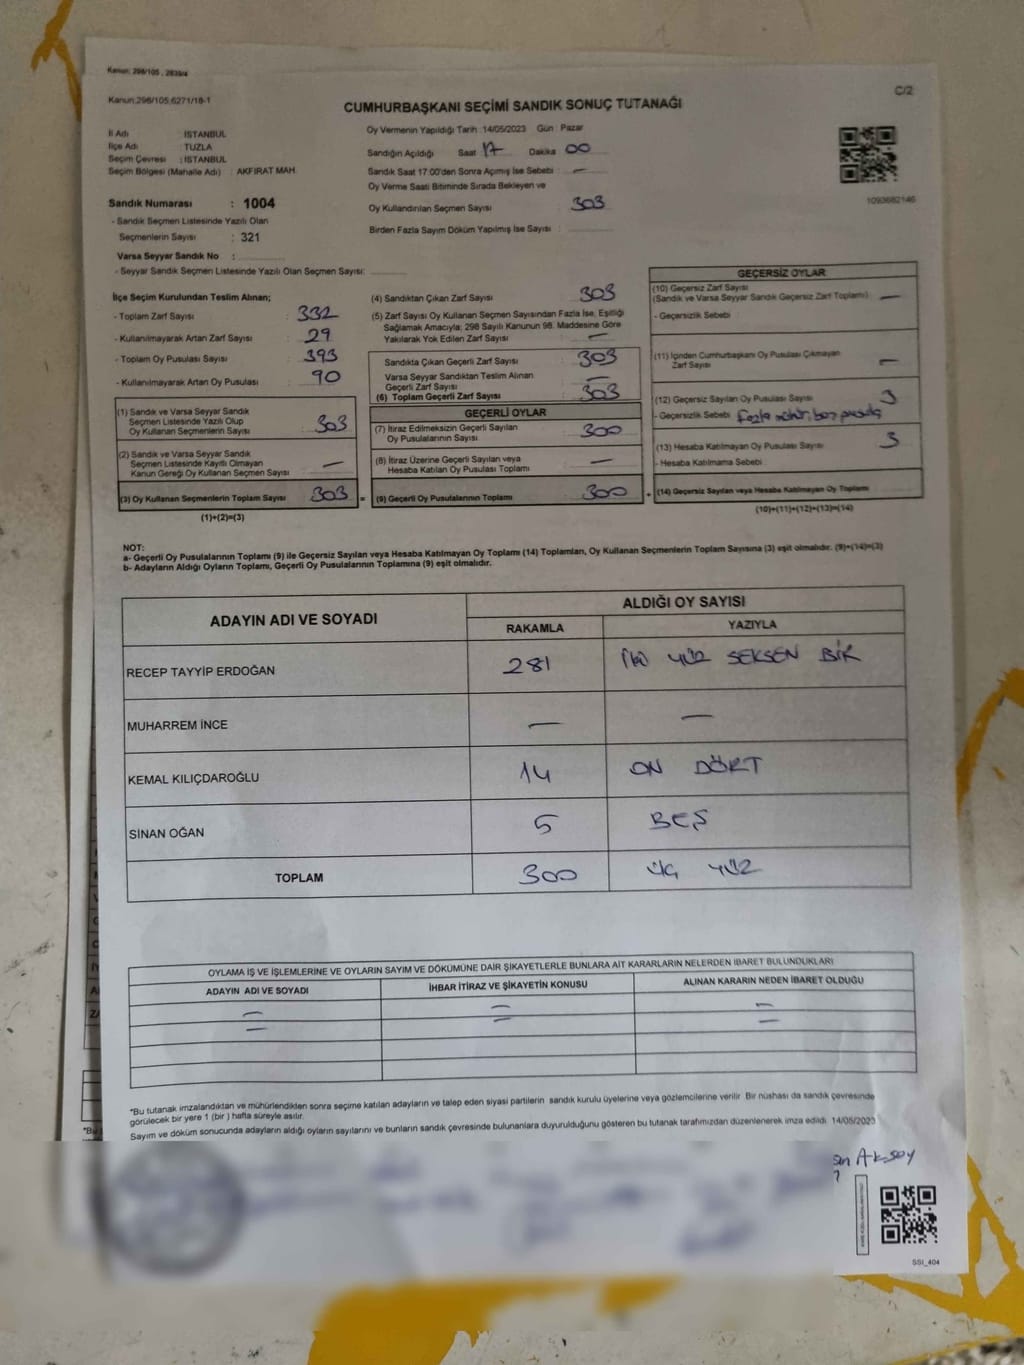 Kanun: 298/105, 2839/4
Kanun:298/105,6271/18-1
C/2
CUMHURBAŞKANI SEÇİMİ SANDIK SONUÇ TUTANAĞI
İl Adı : İSTANBUL
İlçe Adı : TUZLA
Seçim Çevresi : İSTANBUL
Seçim Bölgesi (Mahalle Adı) : AKFIRAT MAH.
Oy Vermenin Yapıldığı Tarih :14/05/2023 Gün : Pazar
Sandığın Açıldığı Saat 17 Dakika 00
Sandık Saat 17:00'den Sonra Açılmış İse Sebebi —
Oy Verme Saati Bitiminde Sırada Bekleyen ve
Oy Kullandırılan Seçmen Sayısı 303
Birden Fazla Sayım Döküm Yapılmış İse Sayısı :
1093682146
Sandık Numarası : 1004
- Sandık Seçmen Listesinde Yazılı Olan
Seçmenlerin Sayısı : 321
Varsa Seyyar Sandık No :
- Seyyar Sandık Seçmen Listesinde Yazılı Olan Seçmen Sayısı:
İlçe Seçim Kurulundan Teslim Alınan;
- Toplam Zarf Sayısı : 332
- Kullanılmayarak Artan Zarf Sayısı : 29
- Toplam Oy Pusulası Sayısı : 393
- Kullanılmayarak Artan Oy Pusulası : 90
(1) Sandık ve Varsa Seyyar Sandık
Seçmen Listesinde Yazılı Olup
Oy Kullanan Seçmenlerin Sayısı 303
(2) Sandık ve Varsa Seyyar Sandık
Seçmen Listesinde Kayıtlı Olmayan
Kanun Gereği Oy Kullanan Seçmen Sayısı —
(3) Oy Kullanan Seçmenlerin Toplam Sayısı 303 =
(1)+(2)=(3)
(4) Sandıktan Çıkan Zarf Sayısı 303
(5) Zarf Sayısı Oy Kullanan Seçmen Sayısından Fazla İse, Eşitliği
Sağlamak Amacıyla; 298 Sayılı Kanunun 98. Maddesine Göre
Yakılarak Yok Edilen Zarf Sayısı —
Sandıkta Çıkan Geçerli Zarf Sayısı 303
Varsa Seyyar Sandıktan Teslim Alınan
Geçerli Zarf Sayısı —
(6) Toplam Geçerli Zarf Sayısı 303
GEÇERLİ OYLAR
(7) İtiraz Edilmeksizin Geçerli Sayılan
Oy Pusulalarının Sayısı 300
(8) İtiraz Üzerine Geçerli Sayılan veya
Hesaba Katılan Oy Pusulası Toplamı —
(9) Geçerli Oy Pusulalarının Toplamı 300 +
GEÇERSİZ OYLAR
(10) Geçersiz Zarf Sayısı
(Sandık ve Varsa Seyyar Sandık Geçersiz Zarf Toplamı) —
- Geçersizlik Sebebi :
(11) İçinden Cumhurbaşkanı Oy Pusulası Çıkmayan
Zarf Sayısı —
(12) Geçersiz Sayılan Oy Pusulası Sayısı 3
- Geçersizlik Sebebi : Fazla mühür, boş pusula
(13) Hesaba Katılmayan Oy Pusulası Sayısı 3
- Hesaba Katılmama Sebebi :
(14) Geçersiz Sayılan veya Hesaba Katılmayan Oy Toplamı
(10)+(11)+(12)+(13)=(14)
NOT:
a- Geçerli Oy Pusulalarının Toplamı (9) ile Geçersiz Sayılan veya Hesaba Katılmayan Oy Toplamı (14) Toplamları, Oy Kullanan Seçmenlerin Toplam Sayısına (3) eşit olmalıdır. (9)+(14)=(3)
b- Adayların Aldığı Oyların Toplamı, Geçerli Oy Pusulalarının Toplamına (9) eşit olmalıdır.
ADAYIN ADI VE SOYADI ALDIĞI OY SAYISI
RAKAMLA YAZIYLA
RECEP TAYYİP ERDOĞAN 281 İKİ YÜZ SEKSEN BİR
MUHARREM İNCE — —
KEMAL KILIÇDAROĞLU 14 ON DÖRT
SİNAN OĞAN 5 BEŞ
TOPLAM 300 ÜÇ YÜZ
OYLAMA İŞ VE İŞLEMLERİNE VE OYLARIN SAYIM VE DÖKÜMÜNE DAİR ŞİKAYETLERLE BUNLARA AİT KARARLARIN NELERDEN İBARET BULUNDUKLARI
ADAYIN ADI VE SOYADI İHBAR İTİRAZ VE ŞİKAYETİN KONUSU ALINAN KARARIN NEDEN İBARET OLDUĞU
*Bu tutanak imzalandıktan ve mühürlendikten sonra seçime katılan adayların ve talep eden siyasi partilerin sandık kurulu üyelerine veya gözlemcilerine verilir. Bir nüshası da sandık çevresinde
görülecek bir yere 1 (bir ) hafta süreyle asılır.
Sayım ve döküm sonucunda adayların aldığı oyların sayılarını ve bunların sandık çevresinde bulunanlara duyurulduğunu gösteren bu tutanak tarafımızdan düzenlenerek imza edildi. 14/05/2023
Aksoy
SSI_404